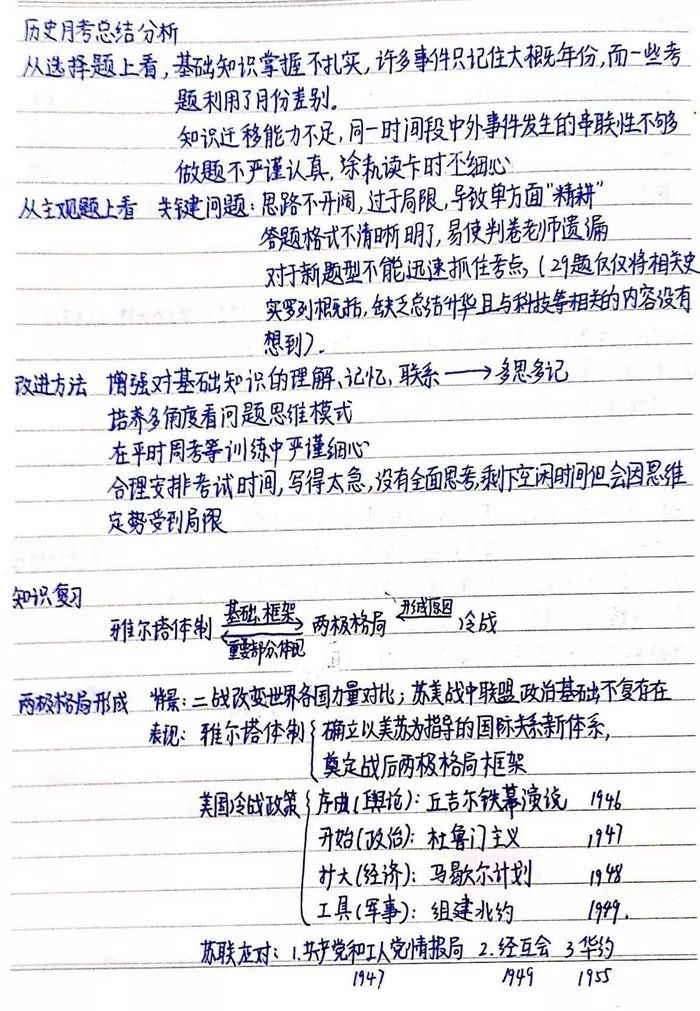 历史月考总结分析
从选择题上看，基础知识掌握不扎实，许多事件只记住大概年份，而一些考
题利用了月份差别。
知识迁移能力不足，同一时间段中外事件发生的串联性不够
做题不严谨认真，涂轨读卡时不细心
从主观题上看 关键问题：思路不开阔，过于局限，导致单方面"精耕"
答题格式不清晰明了，易使判卷老师遗漏
对于新题型不能迅速抓住考点，（29题仅仅将相关史
实罗列概括，缺乏总结升华且与科技等相关的内容没有
想到）.
改进方法 增强对基础知识的理解、记忆，联系 → 多思多记
培养多角度看问题思维模式
在平时周考等训练中严谨细心
合理安排考试时间，写得太急，没有全面思考，剩下空闲时间但会因思维
定势受到局限
知识复习
基础、框架 形成原因
雅尔塔体制 ⇌ 两极格局 ← 冷战
重要部分体现
两极格局形成 背景：二战改变世界各国力量对比；苏美战中联盟政治基础不复存在
表现：雅尔塔体制 { 确立以美苏为指导的国际关系新体系，
奠定战后两极格局框架
美国冷战政策 { 序曲（舆论）：丘吉尔铁幕演说 1946
开始（政治）：杜鲁门主义 1947
扩大（经济）：马歇尔计划 1948
工具（军事）：组建北约 1949.
苏联应对：1.共产党和工人党情报局 2.经互会 3 华约
1947 1949 1955